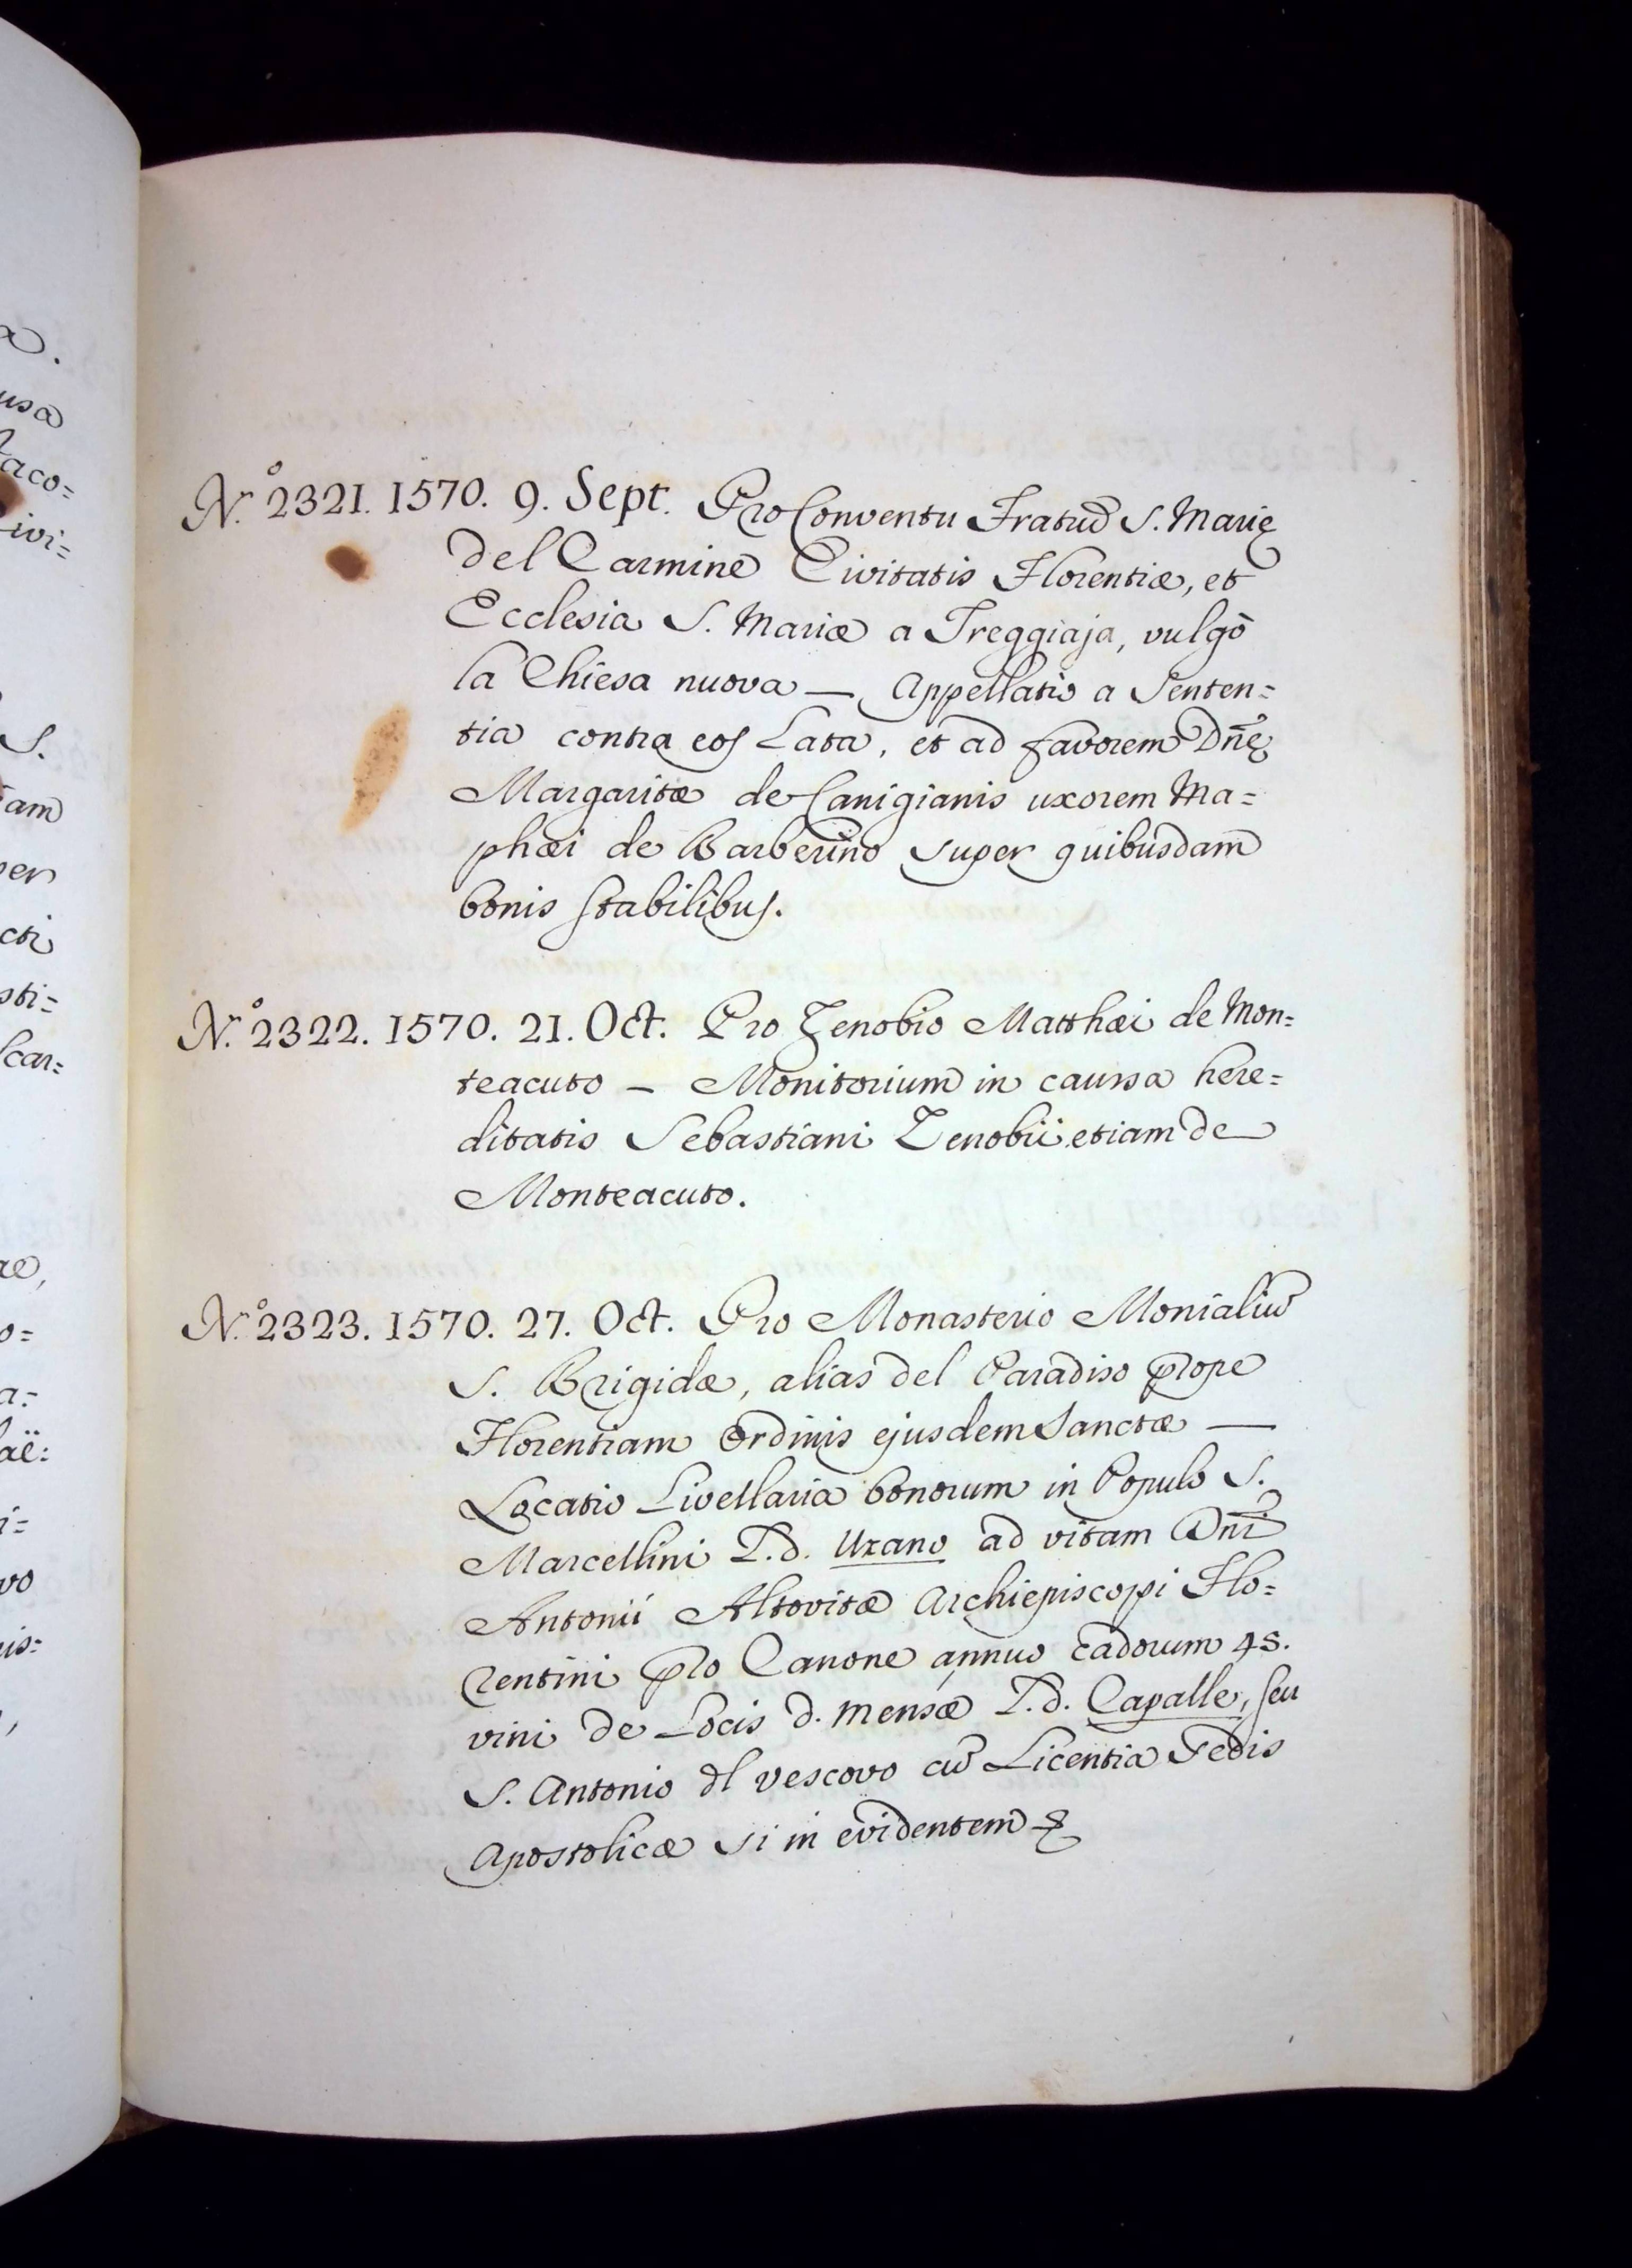 a.
usa
Jaco=
Civi=
S.
iam
per
cti
sti=
Scar=
ae,
o=
a=
aë:
i=
vo
is=
N.º 2321. 1570. 9. Sept. Pro Conventu Fratrū S. Marię
del Carmine Civitatis Florentiæ, et
Ecclesia S. Mariæ a Treggiaja, vulgò
la Chiesa nuova — Appellatio a Senten=
tia contra eos Lata, et ad favorem Dn̄ę
Margaritæ de Canigianis uxorem Ma=
phæi de Barberino super quibusdam
bonis stabilibus.
N.º 2322. 1570. 21. Oct. Pro Zenobio Matthæi de Mon=
teacuto — Monitorium in caussa here=
ditatis Sebastiani Zenobii etiam de
Monteacuto.
N.º 2323. 1570. 27. Oct. Pro Monasterio Monialiū
S. Brigidæ, alias del Paradiso prope
Florentiam Ordinis ejusdem Sanctæ —
Locatio Livellaria bonorum in Populo S.
Marcellini L.d. Uzano ad vitam Dn̄i
Antonii Altovitæ Archiepiscopi Flo=
rentini pro Canone annuo Cadorum 45.
vini de Locis d. Mensæ L.d. Capalle, seu
S. Antonio dl Vescovo cū Licentia Sedis
Apostolicæ si in evidentem &